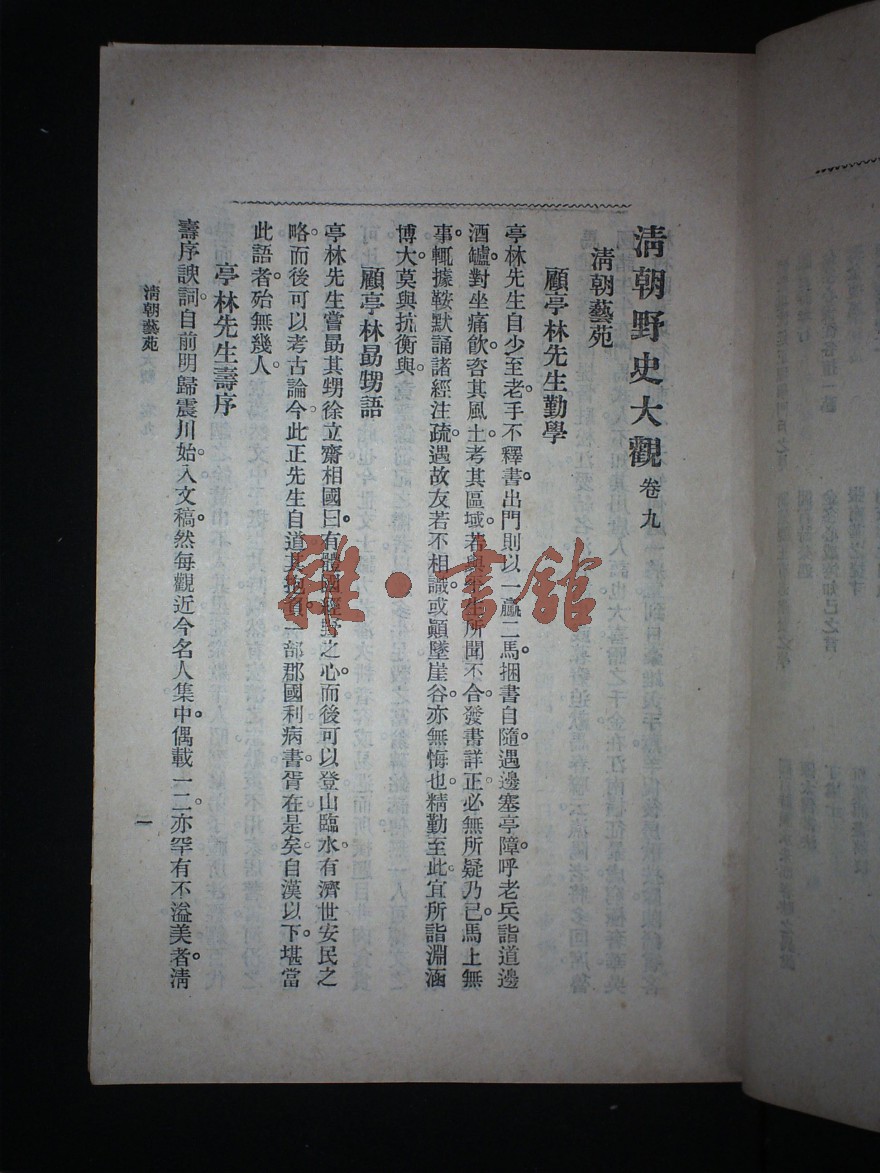 清朝野史大觀 卷九
清朝藝苑
顧亭林先生勤學
亭林先生自少至老手不釋書出門則以一驘二馬捆書自隨遇邊塞亭障呼老兵詣道邊
酒罏對坐痛飲咨其風土考其區域若與平生所聞不合發書詳正必無所疑乃已馬上無
事輒據鞍默誦諸經注疏遇故友若不相識或顚墜崖谷亦無悔也精勤至此宜所詣淵涵
博大莫與抗衡與
顧亭林勗甥語
亭林先生嘗勗其甥徐立齋相國曰有體國經野之心而後可以登山臨水有濟世安民之
略而後可以考古論今此正先生自道其抱負一部郡國利病書胥在是矣自漢以下堪當
此語者殆無幾人
亭林先生壽序
壽序諛詞自前明歸震川始入文稿然每觀近今名人集中偶載一二亦罕有不溢美者淸
清朝藝苑
一
雜·書館